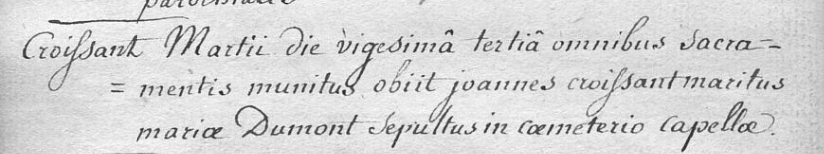 Croissant Martii die vigesimâ tertiâ omnibus sacra=
= mentis munitus obiit joannes croissant maritus
mariæ Dumont sepultus in cœmeterio capellæ.